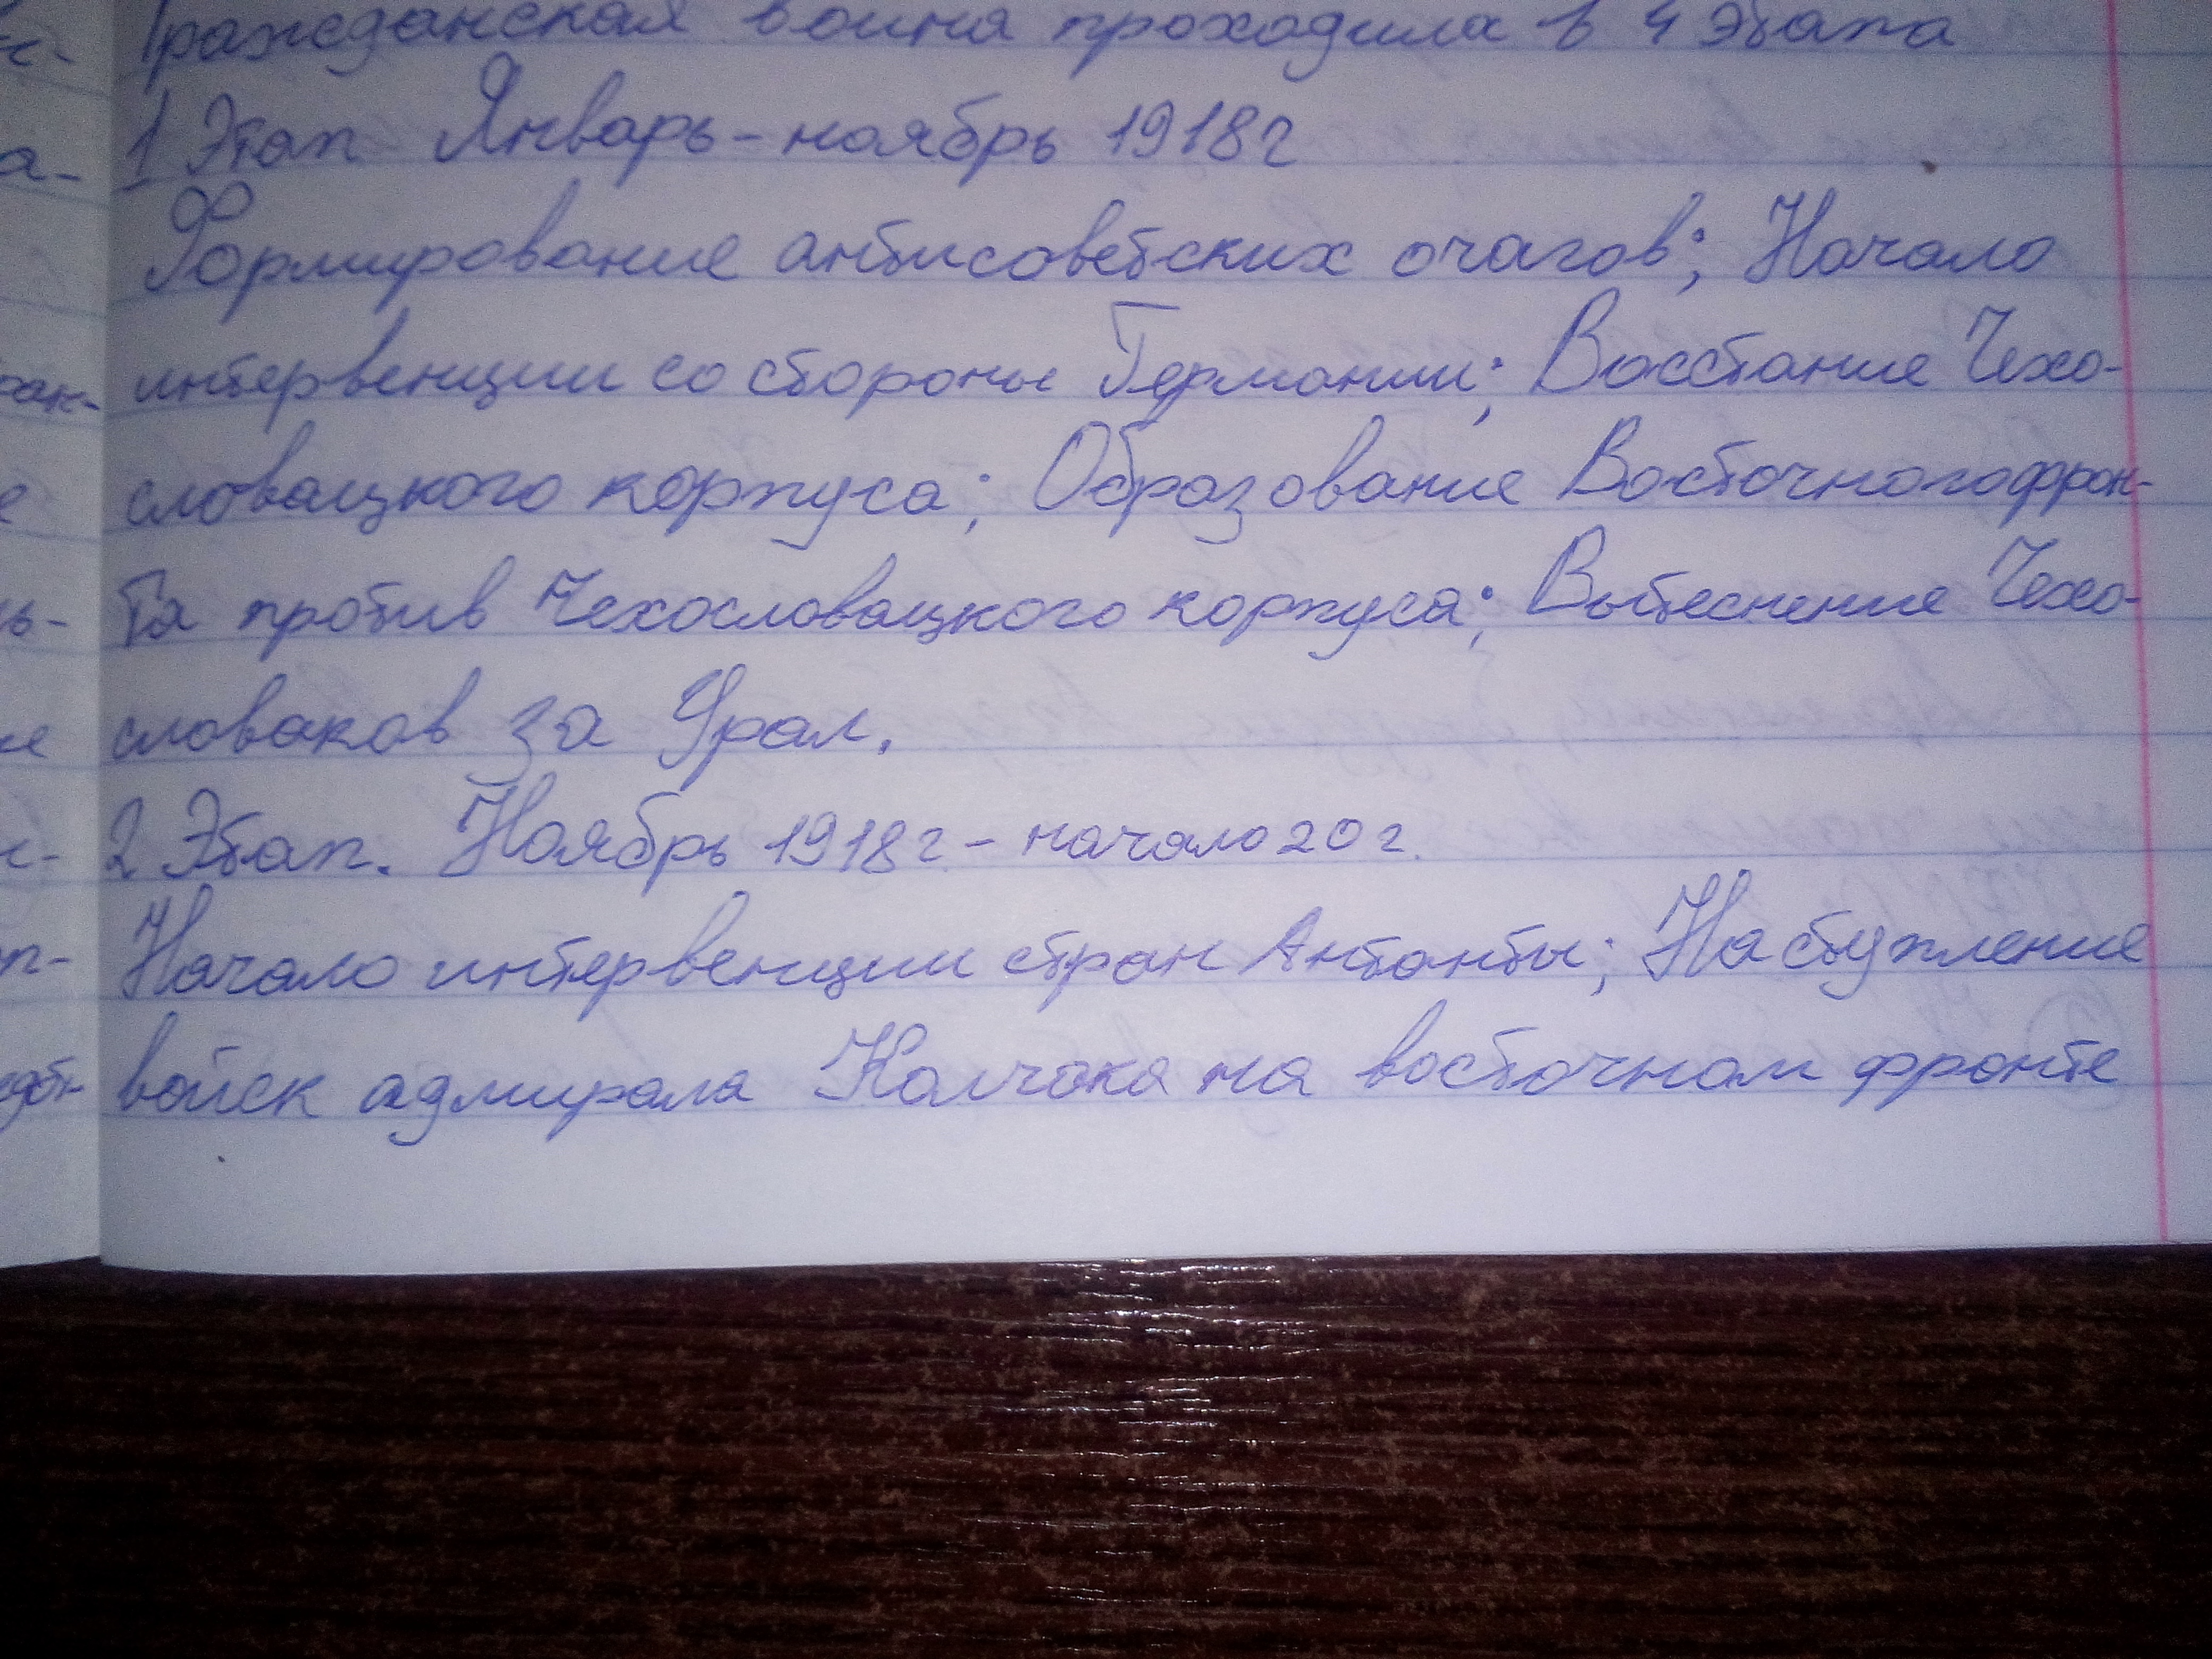 Гражданская война проходила в 4 этапа
1 Этап Январь - ноябрь 1918г
Формирование антисоветских очагов; Начало
интервенции со стороны Германии; Восстание Чехо-
словацкого корпуса; Образование Восточного фрон-
та против Чехословацкого корпуса; Вытеснение Чехо-
словаков за Урал.
2 Этап. Ноябрь 1918г - начало 20 г.
Начало интервенции стран Антанты; Наступление
войск адмирала Колчака на восточном фронте